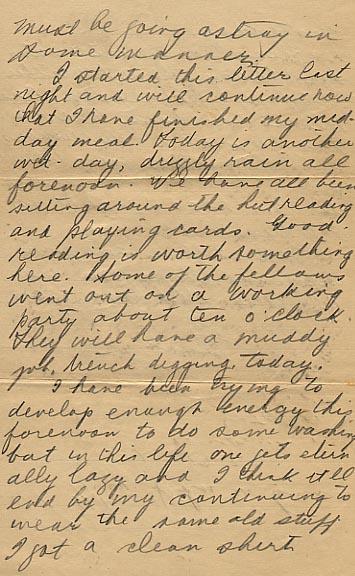 must be going astray in
some manner.
I started this letter last
night and will continue now
that I have finished my mid-
day meal. Today is another
wet day, drizzly rain all
forenoon. We have all been
sitting around the hut reading
and playing cards. Good
reading is worth something
here. Some of the fellows
went out on a working
party about ten o'clock.
They will have a muddy
job, trench digging, today.
I have been trying to
develop enough energy this
forenoon to do some washing
but in this life one gets etern-
ally lazy and I think it'll
end by my continuing to
wear the same old stuff.
I got a clean shirt